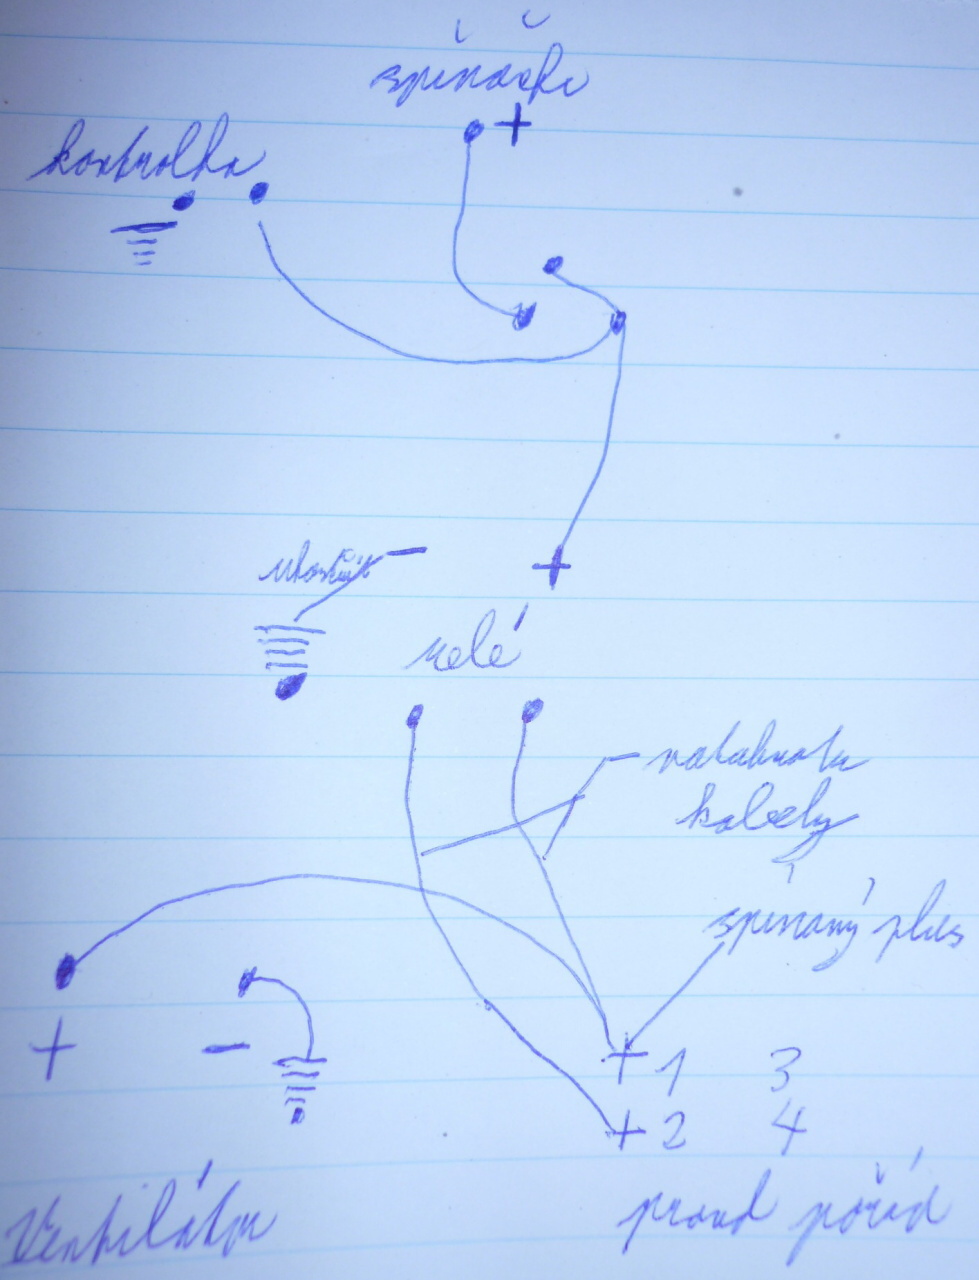 spínačku
+
kontrolka
− +
relé
natahnuta
kabely
spínaný plus
+ −
+ 1 3
+ 2 4
Ventilátor
proud pořád